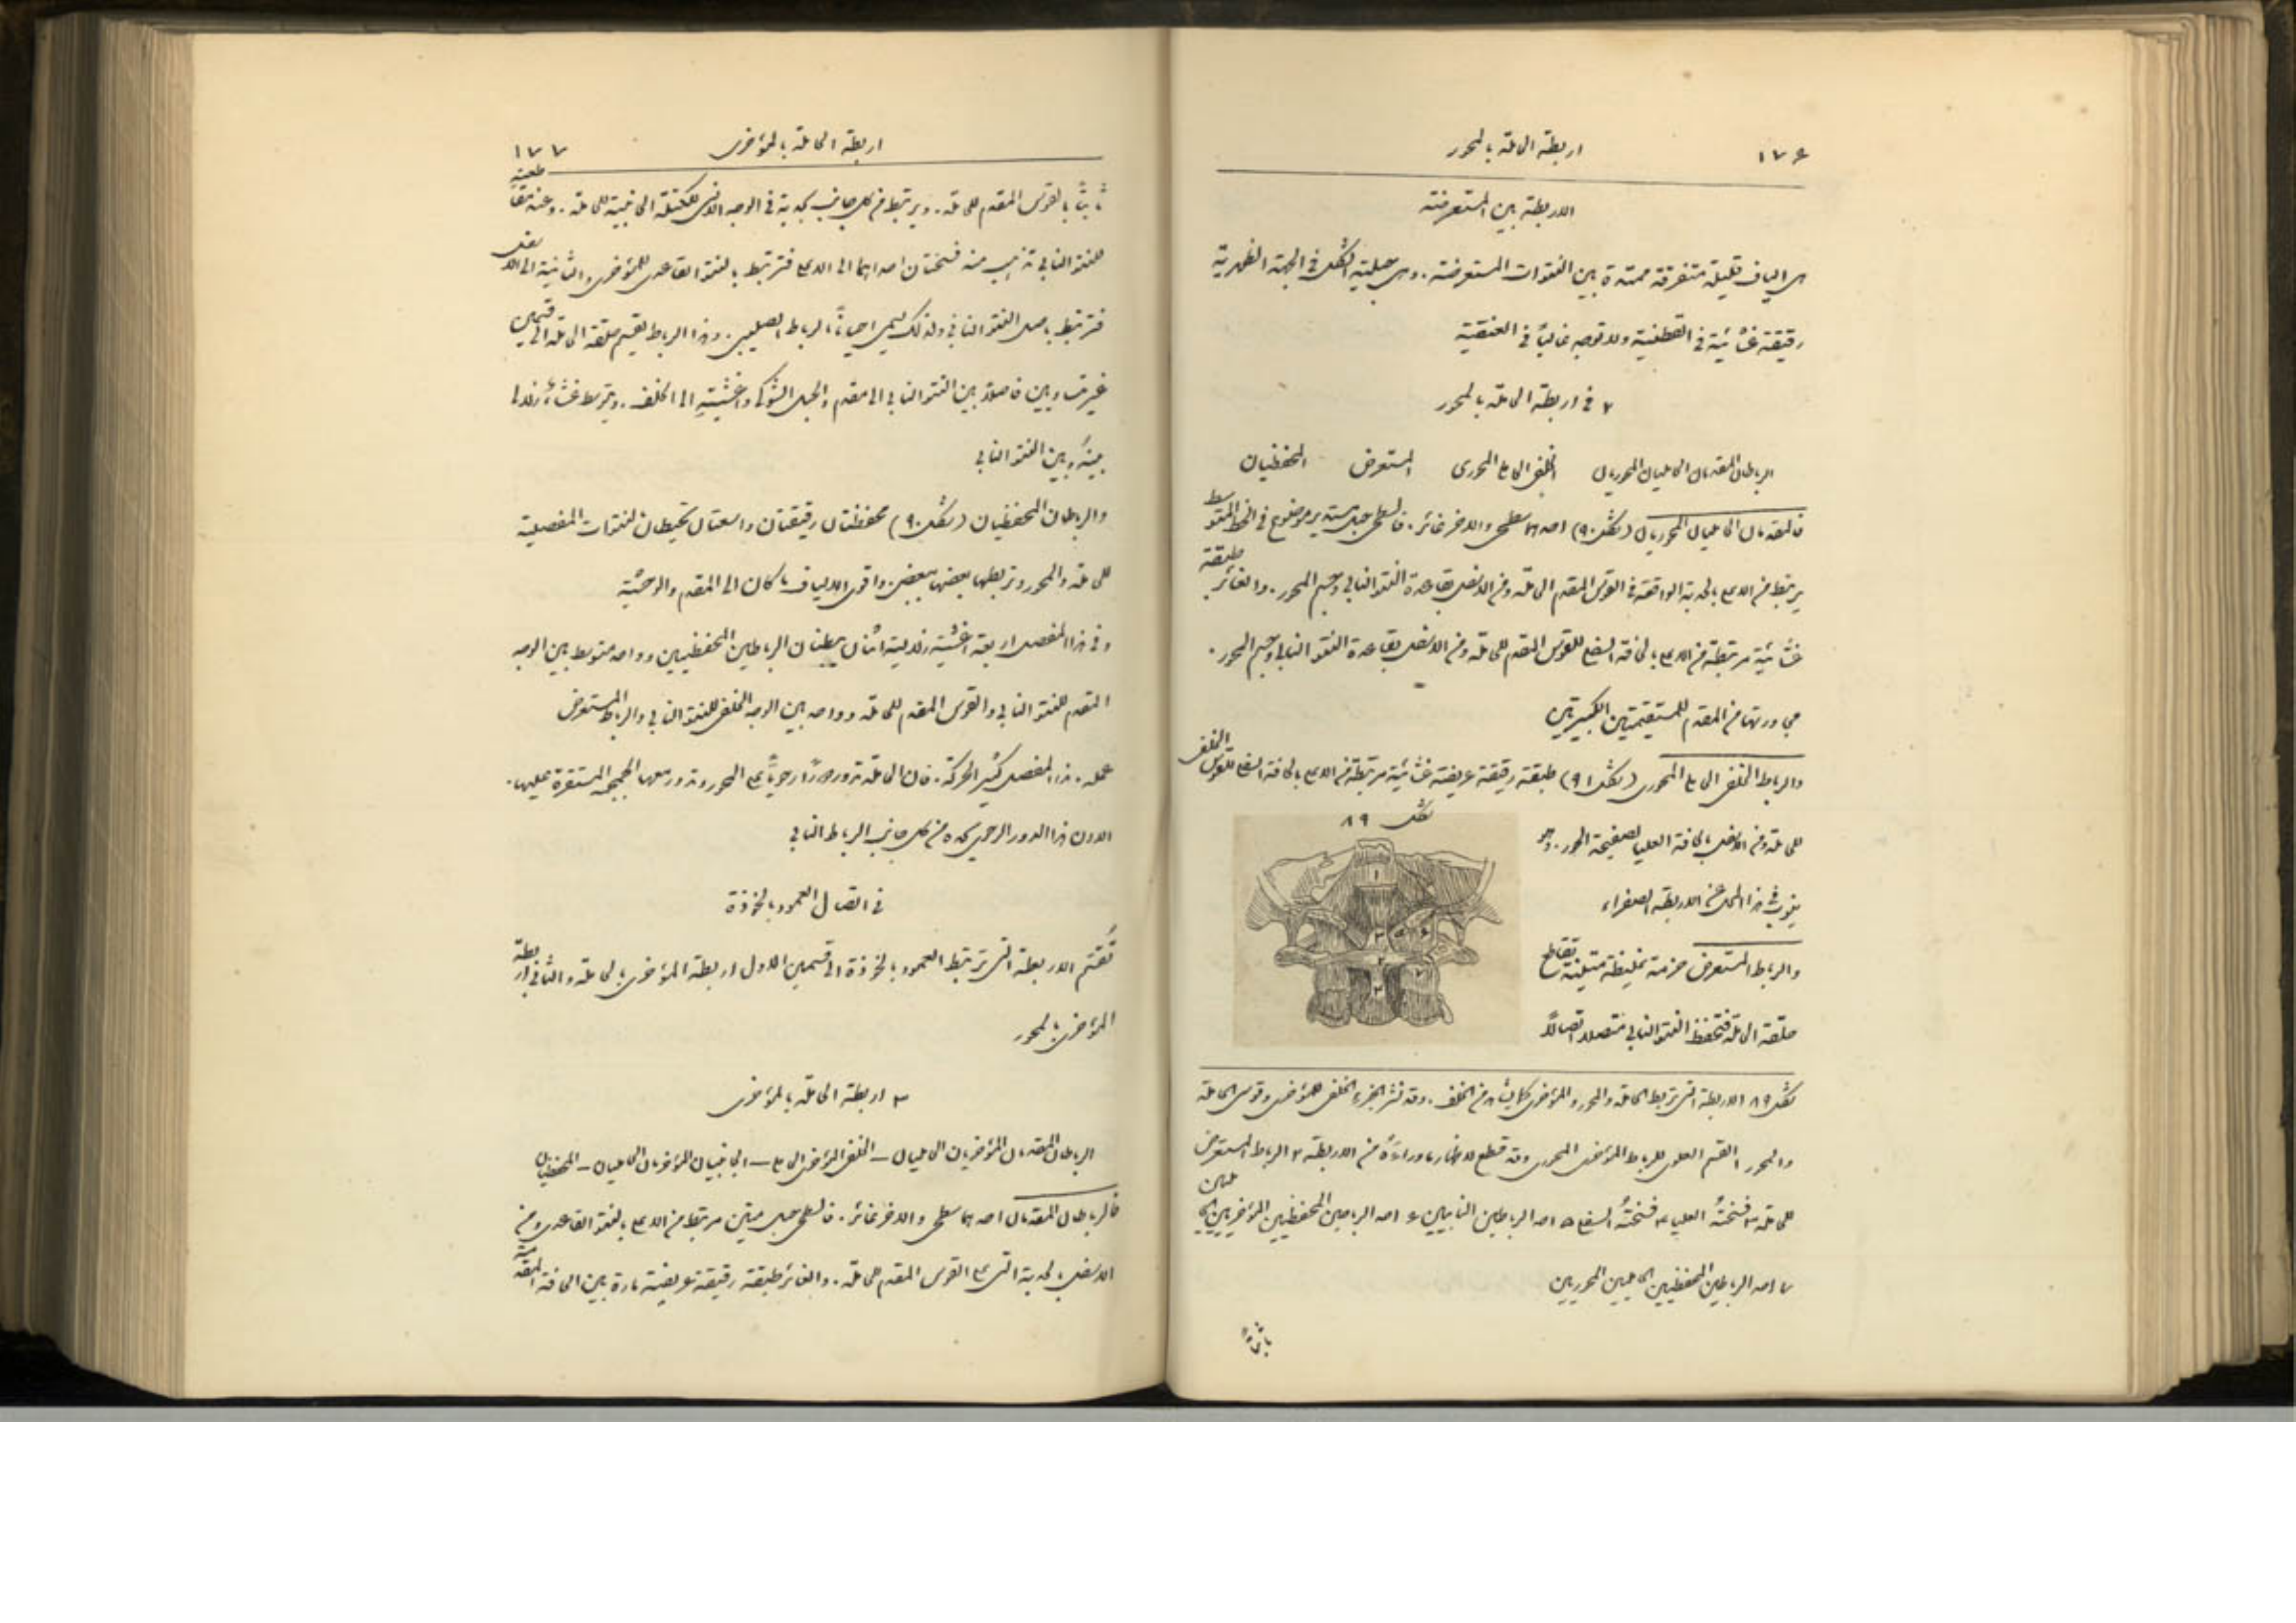 ١٧٦
اربطة الحاملة بالمحور
الاربطة بين المستعرضة
هي الياف قليلة متفرقة ممتدة بين النتوات المستعرضة . وهي حبلية الشكل في الجهة الظهرية
رقيقة غشائية في القطنية ولا توجد غالباً في العنقية
٢ في اربطة الحاملة بالمحور
الرباطان المقدمان الحامليان المحوريان الخلفي الحاملي المحوري المستعرض المحفظيان
فالمقدمان الحامليان المحوريان (شكل ٩٠) احدهما سطحي والاخر غائر . فالسطحي حبل مستدير موضوع في الخط المتوسط
يرتبط من الاعلى بالحدبة الواقعة في القوس المقدم الحاملة ومن الاسفل بقاعدة النتو النابي وجسم المحور . والغائر طبقة
غشائية مرتبطة من الاعلى بالحافة السفلى للقوس المقدم للحاملة ومن الاسفل بقاعدة النتو النابي وجسم المحور .
مجاورتها من المقدم للمستقيمتين الكبيرتين
والرباط الخلفي الحاملي المحوري (شكل ٩١) طبقة رقيقة عريضة غشائية مرتبطة من الاعلى بالحافة السفلى للقوس الخلفي
للحاملة ومن الاسفل بالحافة العليا لصفيحة المحور . وهو
ينوب في هذا المحل عن الاربطة الصفراء
والرباط المستعرض حزمة غليظة متينة تقاطع
حلقة الحاملة فتحفظ النتو النابي متصلا اتصالاً
شكل ٨٩
١
٣ ٥ ٦
٢
٤ ٧
شكل ٨٩ الاربطة التي تربط الحاملة والمحور والمؤخري كما يشاهد من الخلف . وقد نشر الجزء الخلفي للمؤخري وقوس الحاملة
والمحور ١ القسم العلوي للرباط المؤخري المحوري وقد قطع لاظهار ما وراءه من الاربطة ٢ الرباط المستعرض
للحاملة ٣ فتختهُ العليا ٤ فتختهُ السفلى ٥ احد الرباطين النابيين ٦ احد الرباطين المحفظيين المؤخريين الحامليين
٧ احد الرباطين المحفظيين الحامليين المحوريين
ثابتاً
اربطة الحاملة بالمؤخري
١٧٧
ثابتاً بالقوس المقدم للحاملة . ويرتبط من كل جانب بحدبة في الوجه الانسي للكتلة الجانبية للحاملة . وعند مقاطعته
للنتو النابي تذهب منه فتختان احداهما الى الاعلى فترتبط بالنتو القاعدي للمؤخري والثانية الى الاسفل
فترتبط باصل النتو النابي ولذلك يسمى احياناً بالرباط الصليبي . وهذا الرباط يقسم حلقة الحاملة الى قسمين
غير متساويين فاصلاً بين النتو النابي الى المقدم والحبل الشوكي واغشيتهِ الى الخلف . ويتوسط غشاء زلالي
بينهُ وبين النتو النابي
والرباطان المحفظيان (شكل ٩٠) محفظتان رقيقتان واسعتان تحيطان بالنتوات المفصلية
للحاملة والمحور وتربطها بعضها ببعض . واقوى الالياف ما كان الى المقدم والوحشية
وفي هذا المفصل اربعة اغشية زلالية اثنان يبطنان الرباطين المحفظيين وواحد متوسط بين الوجه
المقدم للنتو النابي والقوس المقدم للحاملة وواحد بين الوجه الخلفي للنتو النابي والرباط المستعرض
عمله . هذا المفصل كثير الحركة . فان الحاملة تدور دوراً رحوياً على المحور وتدور معها الجمجمة المستقرة عليها .
الا ان هذا الدور الرحوي يحده من كل جانب الرباط النابي
في اتصال العمود بالخوذة
تُقسَم الاربطة التي تربط العمود بالخوذة الى قسمين الاول اربطة المؤخري بالحاملة والثاني اربطة
المؤخري بالمحور
٣ اربطة الحاملة بالمؤخري
الرباطان المقدمان المؤخريان الحامليان – الخلفي المؤخري الحاملي – الجانبيان المؤخريان الحامليان – المحفظيان
فالرباطان المقدمان احدهما سطحي والاخر غائر . فالسطحي حبل متين مرتبط من الاعلى بالنتو القاعدي ومن
الاسفل بالحدبة التي على القوس المقدم للحاملة . والغائر طبقة رقيقة عريضة مارة بين الحافة المقدمة